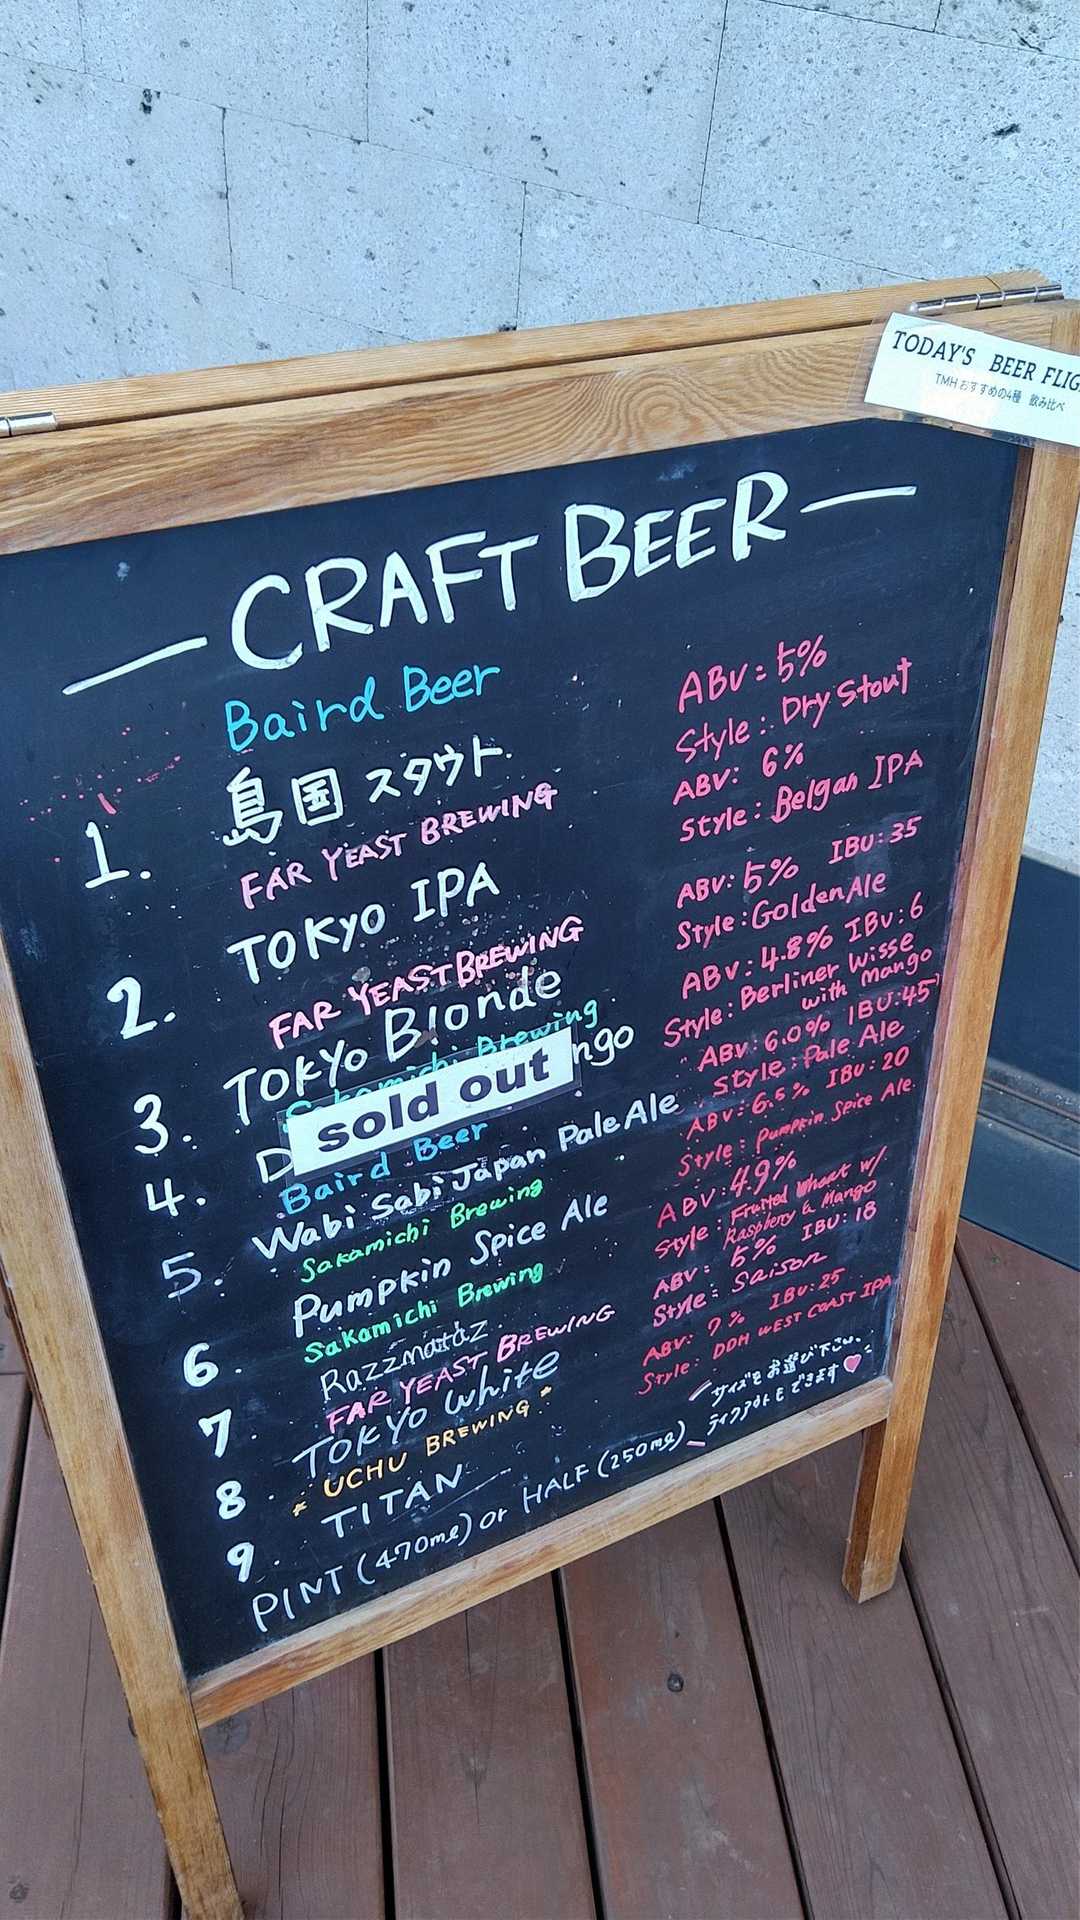 TODAY'S BEER FLIG
TMHおすすめの4種 飲み比べ
CRAFT BEER
Baird Beer
1. 島国スタウト
ABV: 5%
Style: Dry Stout
FAR YEAST BREWING
2. TOKYO IPA
ABV: 6%
Style: Belgan IPA
FAR YEAST BREWING
3. TOKYO Blonde
ABV: 5% IBU: 35
Style: Golden Ale
Sakamichi Brewing
4. D ngo
sold out
ABV: 4.8% IBU: 6
Style: Berliner Wisse
with mango
Baird Beer
5. Wabi Sabi Japan Pale Ale
ABV: 6.0% IBU: 45
Style: Pale Ale
Sakamichi Brewing
6. Pumpkin Spice Ale
ABV: 6.5% IBU: 20
Style: Pumpkin Spice Ale
Sakamichi Brewing
7. Razzmataz
ABV: 4.9%
Style: Fruited Wheat w/
Raspberry & Mango
FAR YEAST BREWING
8. TOKYO White
ABV: 5% IBU: 18
Style: Saison
UCHU BREWING
9. TITAN
ABV: 7% IBU: 25
Style: DDH WEST COAST IPA
PINT (470ml) or HALF (250ml)
サイズをお選び下さい
テイクアウトもできます